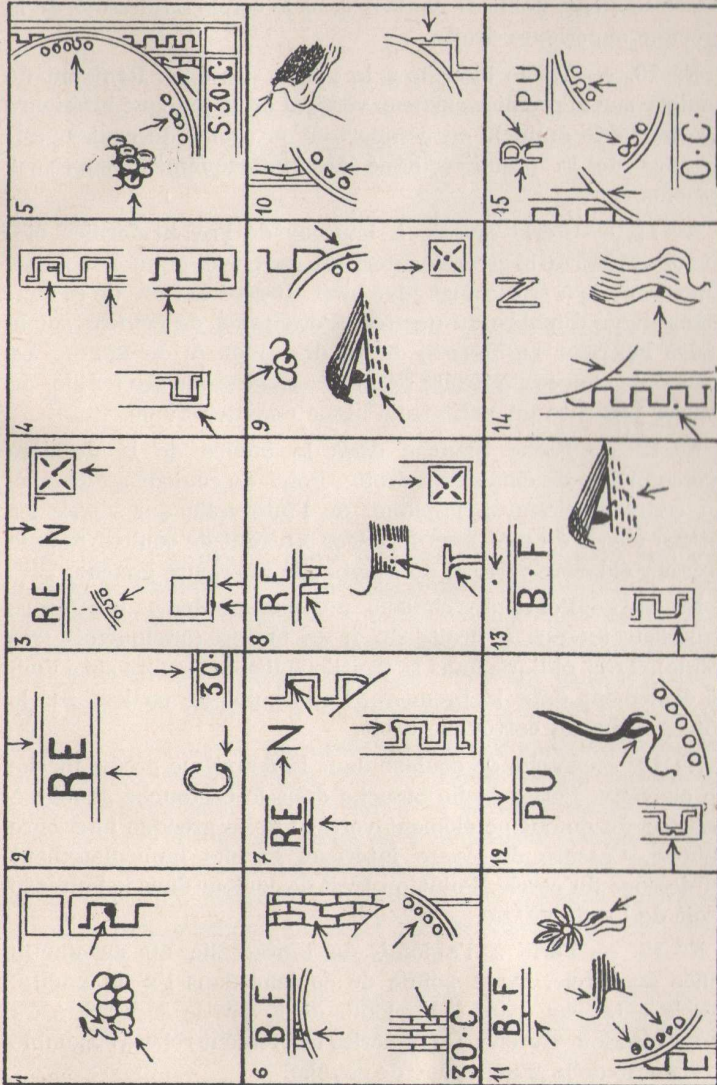 1
2
RE
C
30·
3
RE N
4
5
S·30·C·
6
B·F
30·C
7
RE N
8
RE
9
10
11
B·F
12
PU
13
B·F
14
N
15
R PU
O·C·